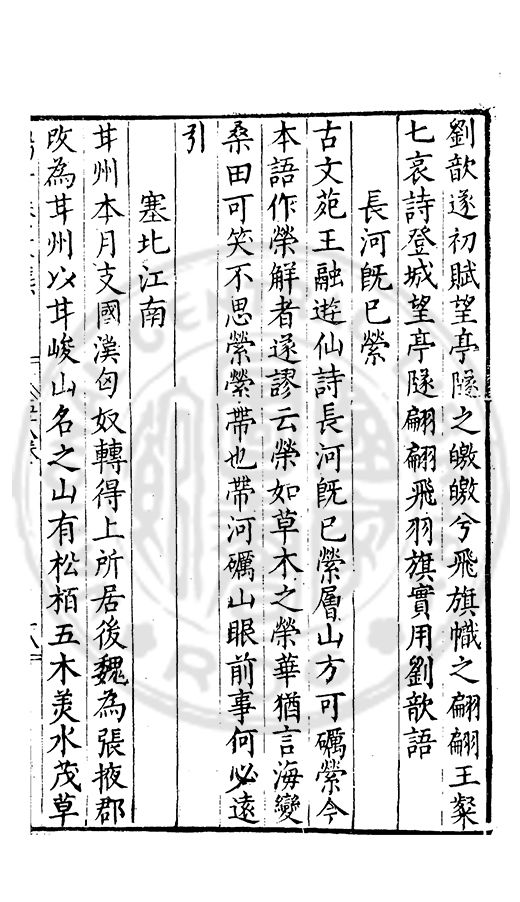 劉歆遂初賦望亭隧之皦皦兮飛旗幟之翩翩王粲
七哀詩登城望亭隧翩翩飛羽旗實用劉歆語
長河旣已縈
古文苑王融遊仙詩長河旣已縈層山方可礪縈今
本語作榮解者遂謬云榮如草木之榮華猶言海變
桑田可笑不思縈縈帶也帶河礪山眼前事何必遠
引
塞北江南
甘州本月支國漢匈奴轉得上所居後魏為張掖郡
改為甘州以甘峻山名之山有松栢五木美水茂草